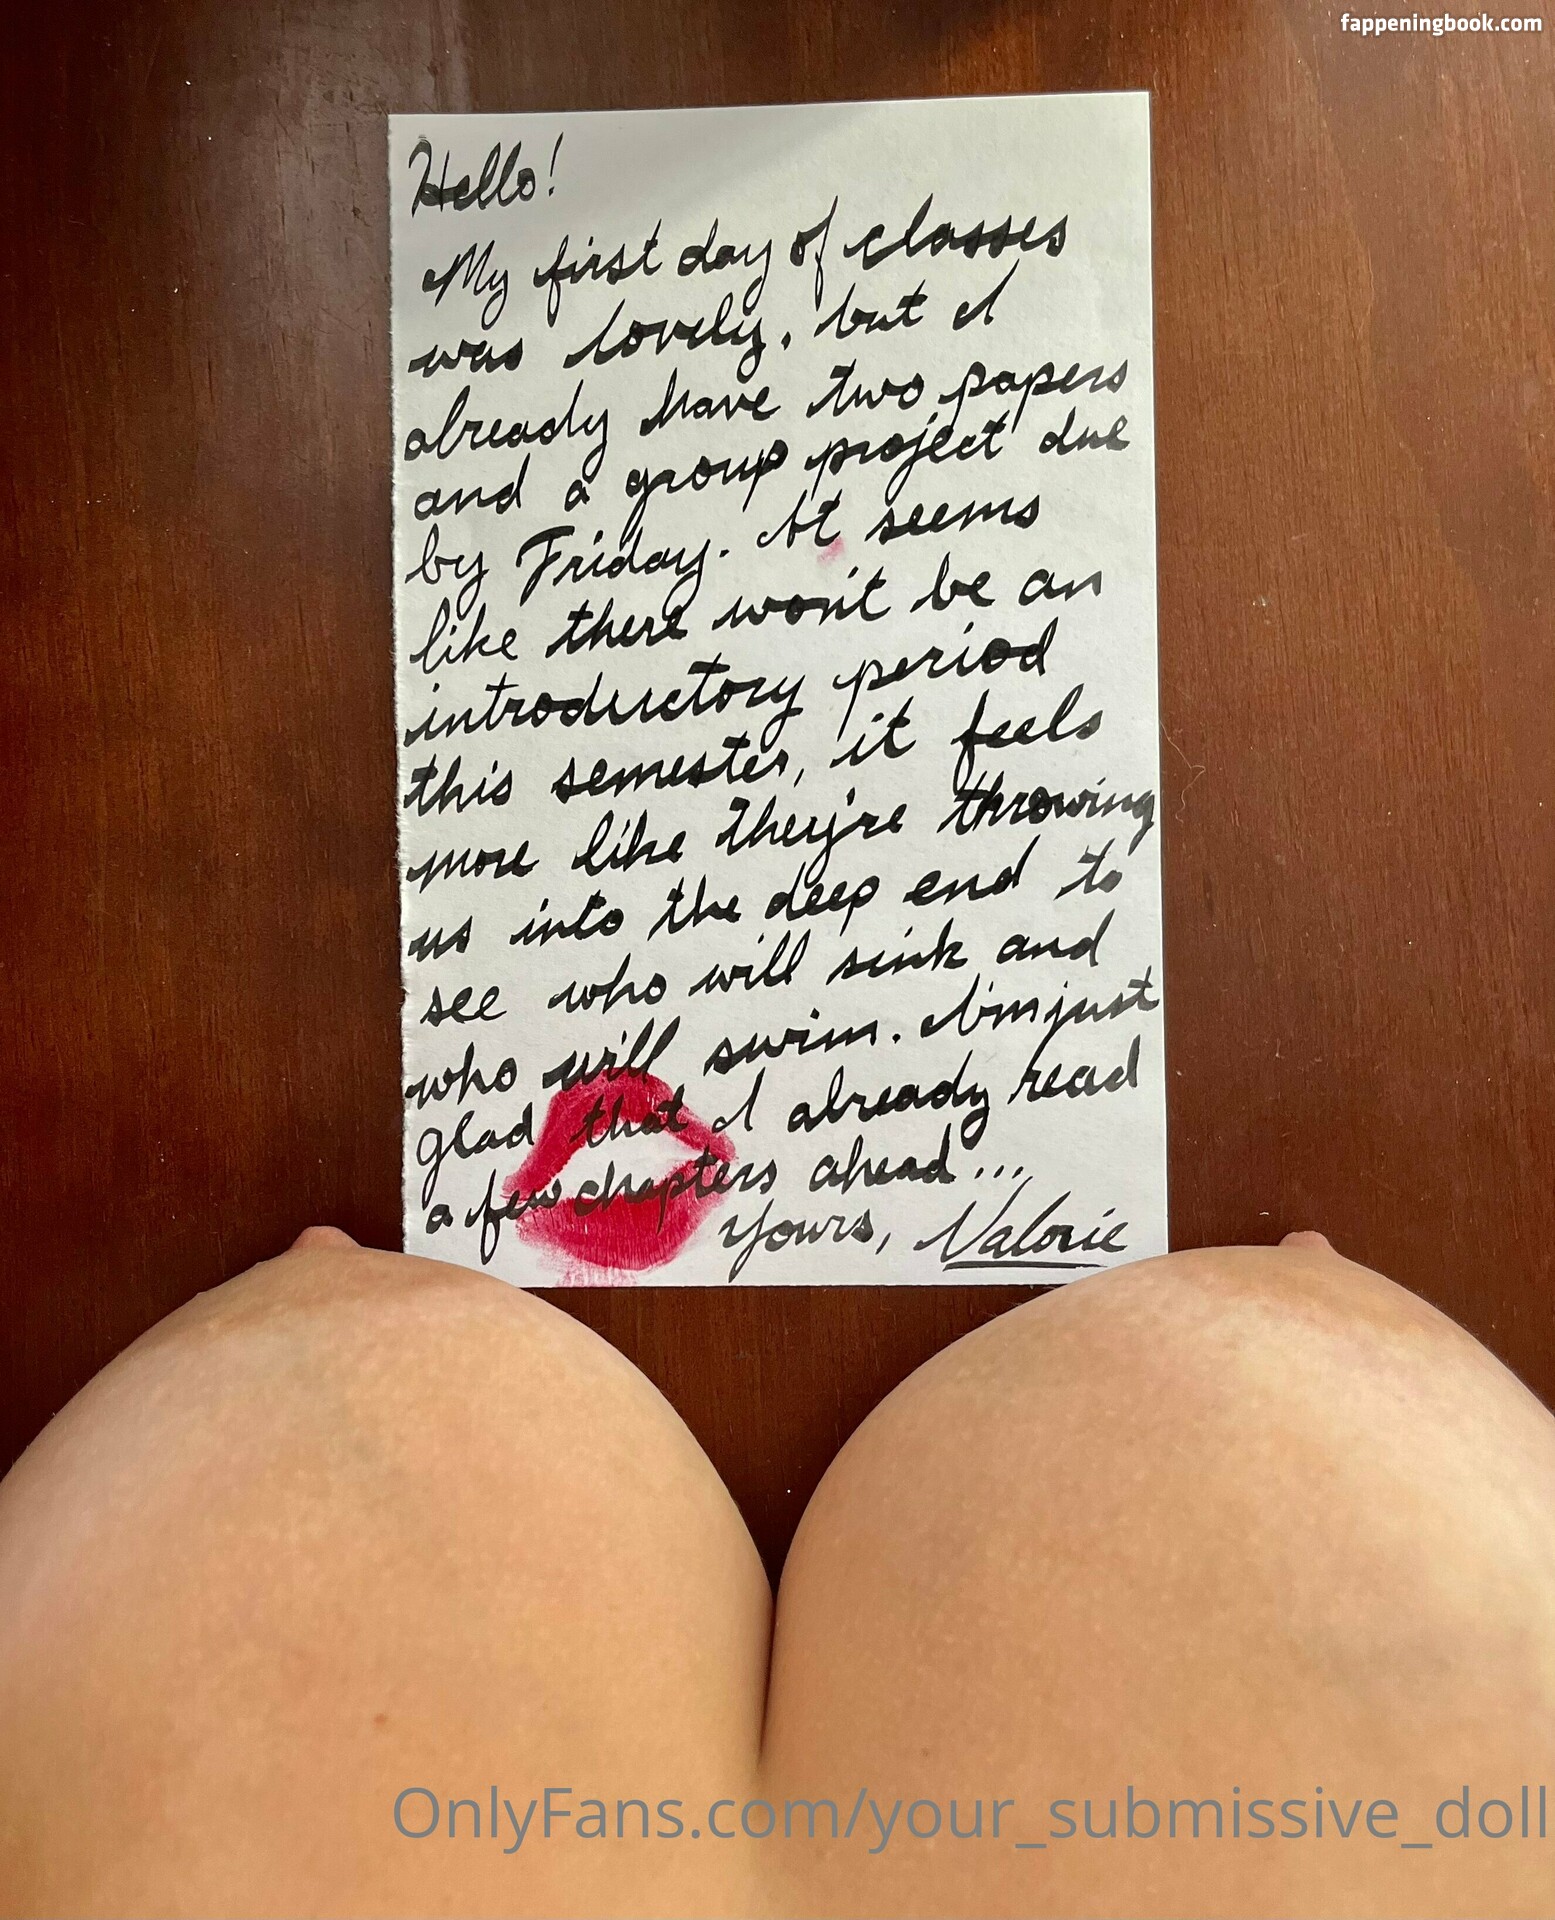 fappeningbook.com
Hello!
My first day of classes
was lovely, but I
already have two papers
and a group project due
by Friday. It seems
like there won't be an
introductory period
this semester, it feels
more like they're throwing
us into the deep end to
see who will sink and
who will swim. I'm just
glad that I already read
a few chapters ahead...
Yours, Valorie
OnlyFans.com/your_submissive_doll